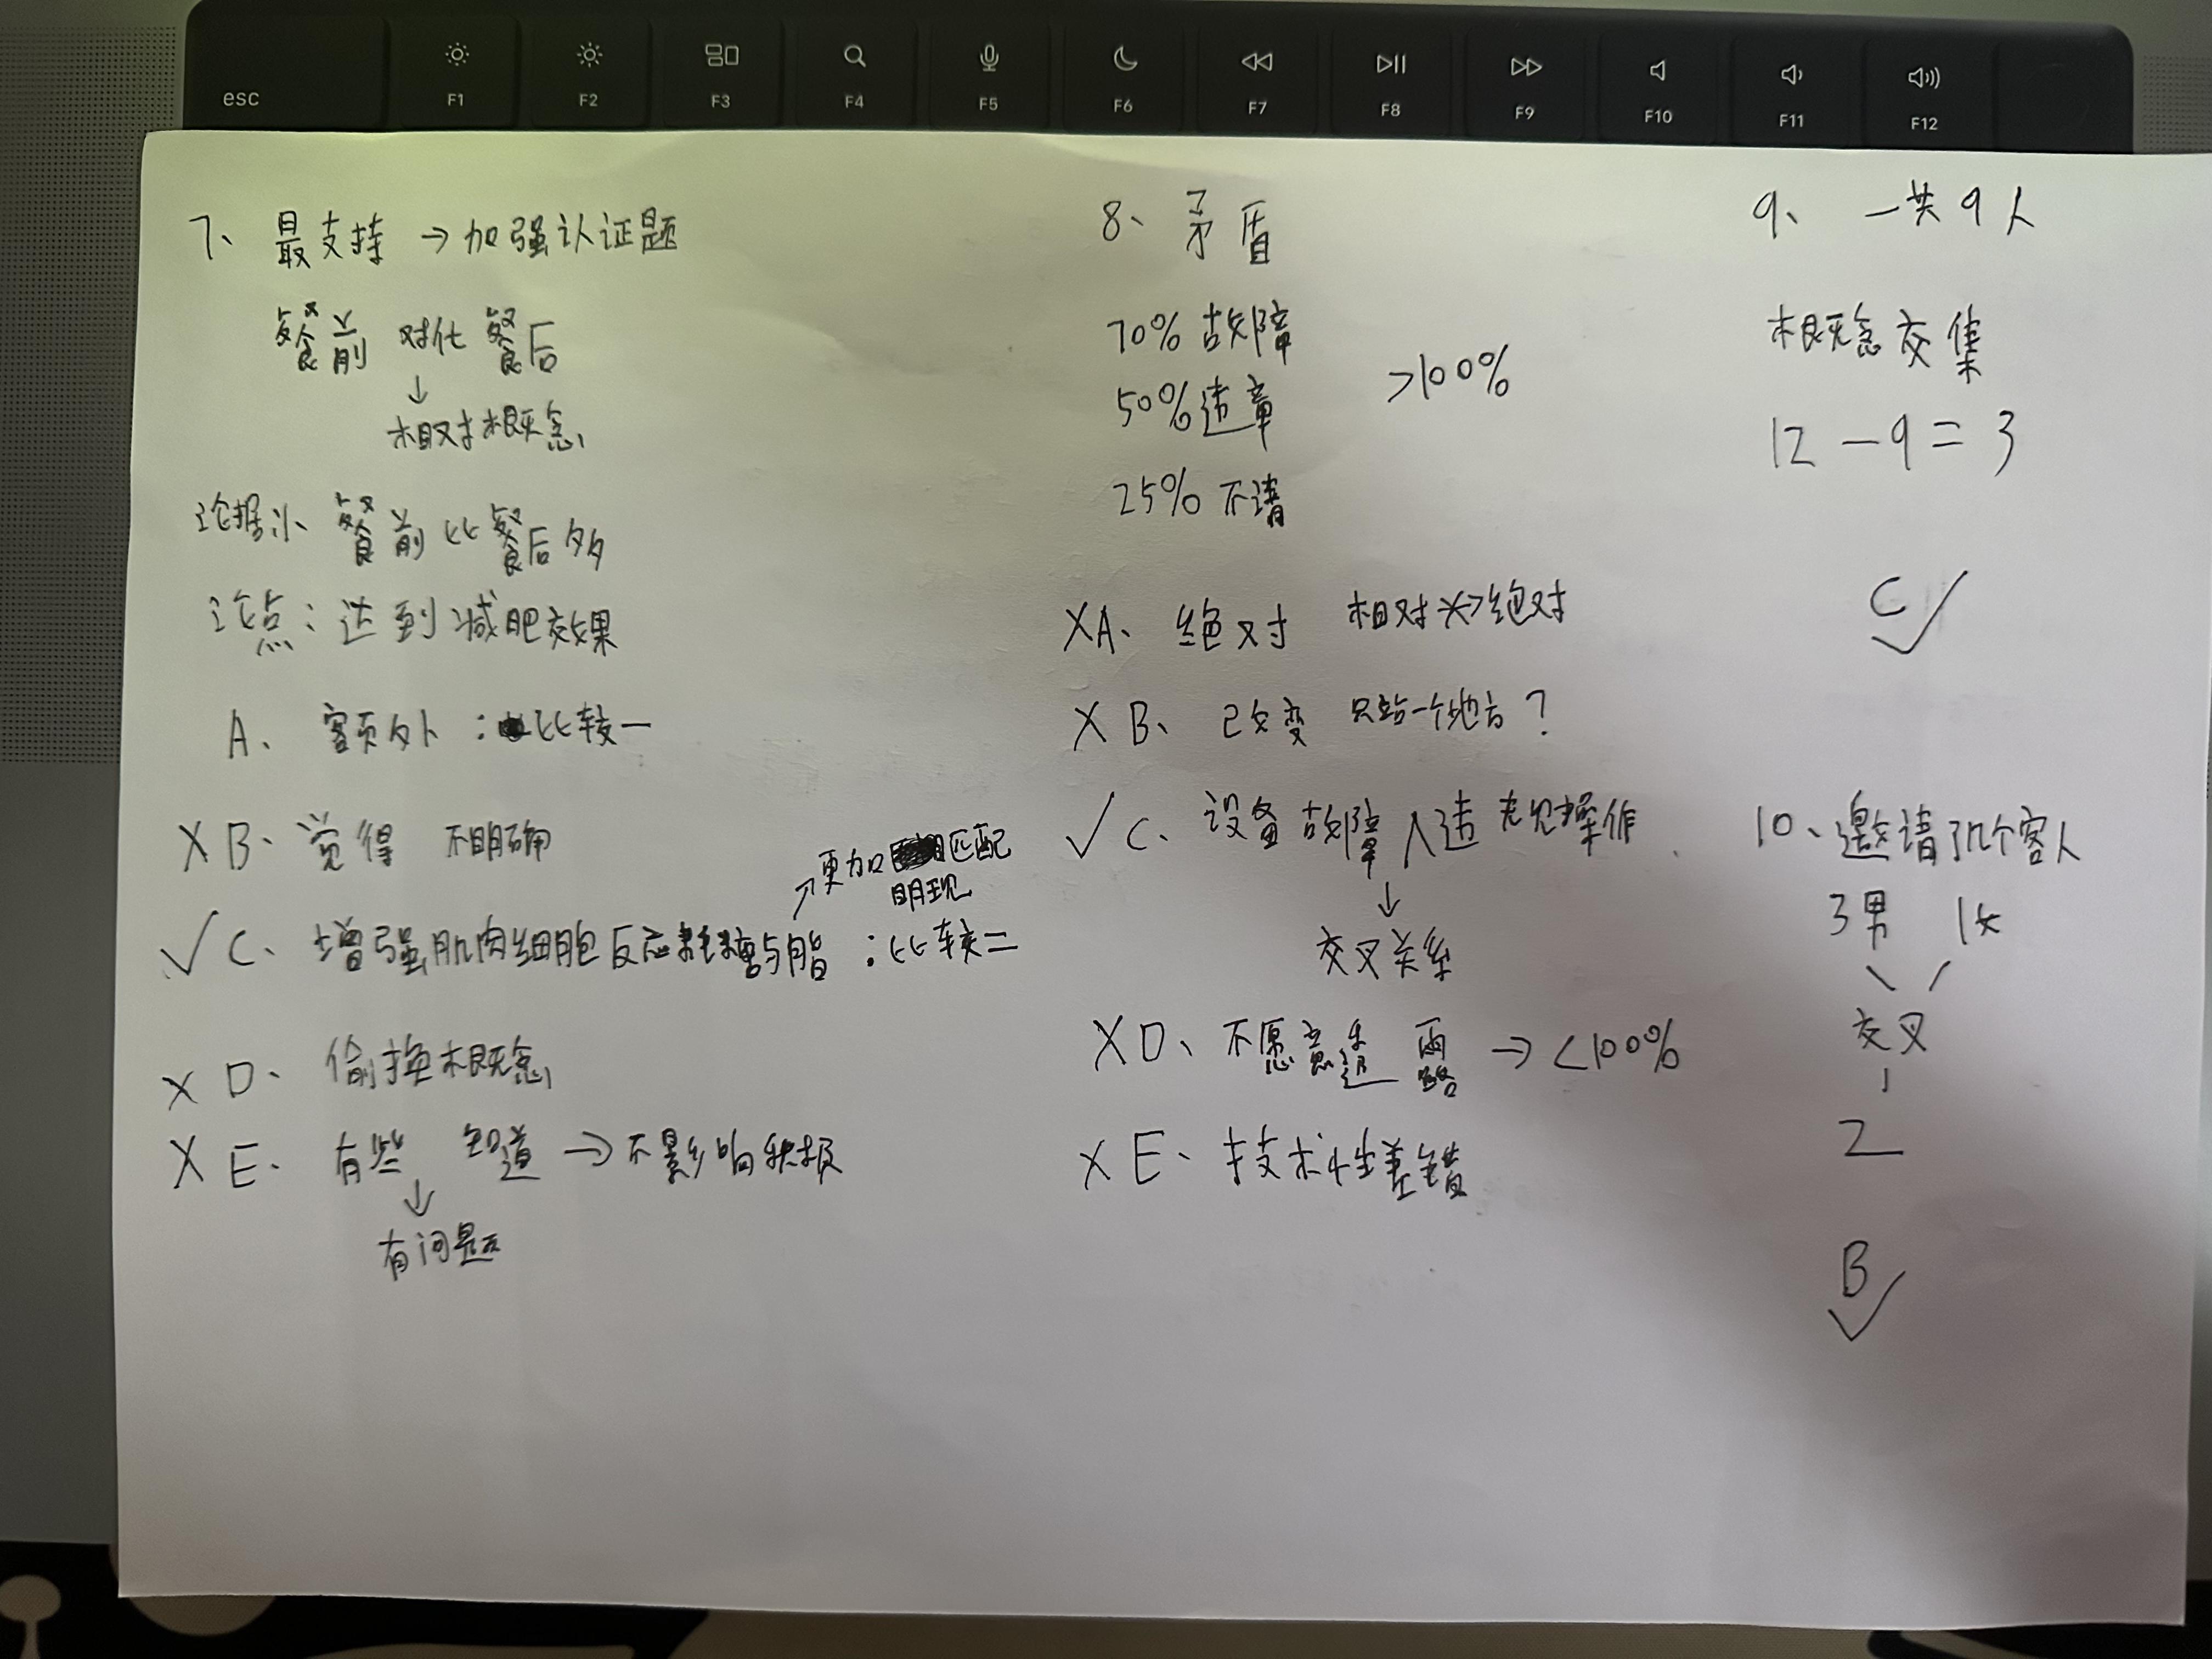 esc
F1
F2
F3
F4
F5
F6
F7
F8
F9
F10
F11
F12
7、最支持 → 加强认证题
餐前 对比 餐后
↓
相对概念
论据：餐前比餐后多
论点：达到减肥效果
A、额外：比较一
X B、觉得 不明确
↗更加匹配
明现
√ C、增强肌肉细胞反应耗糖与脂：比较二
X D、偷换概念
X E、有些 知道 → 不影响积极
↓
有问题
8、矛盾
70% 故障
50% 违章
>100%
25% 不清
X A、绝对 相对 绝对
X B、已改变 只站一个地方？
√ C、设备故障 人违规操作
↓
交叉关系
X D、不愿意透露 → <100%
X E、技术性差错
9、一共9人
概念交集
12 - 9 = 3
C√
10、邀请几个客人
3男 1女
交叉
2
B√